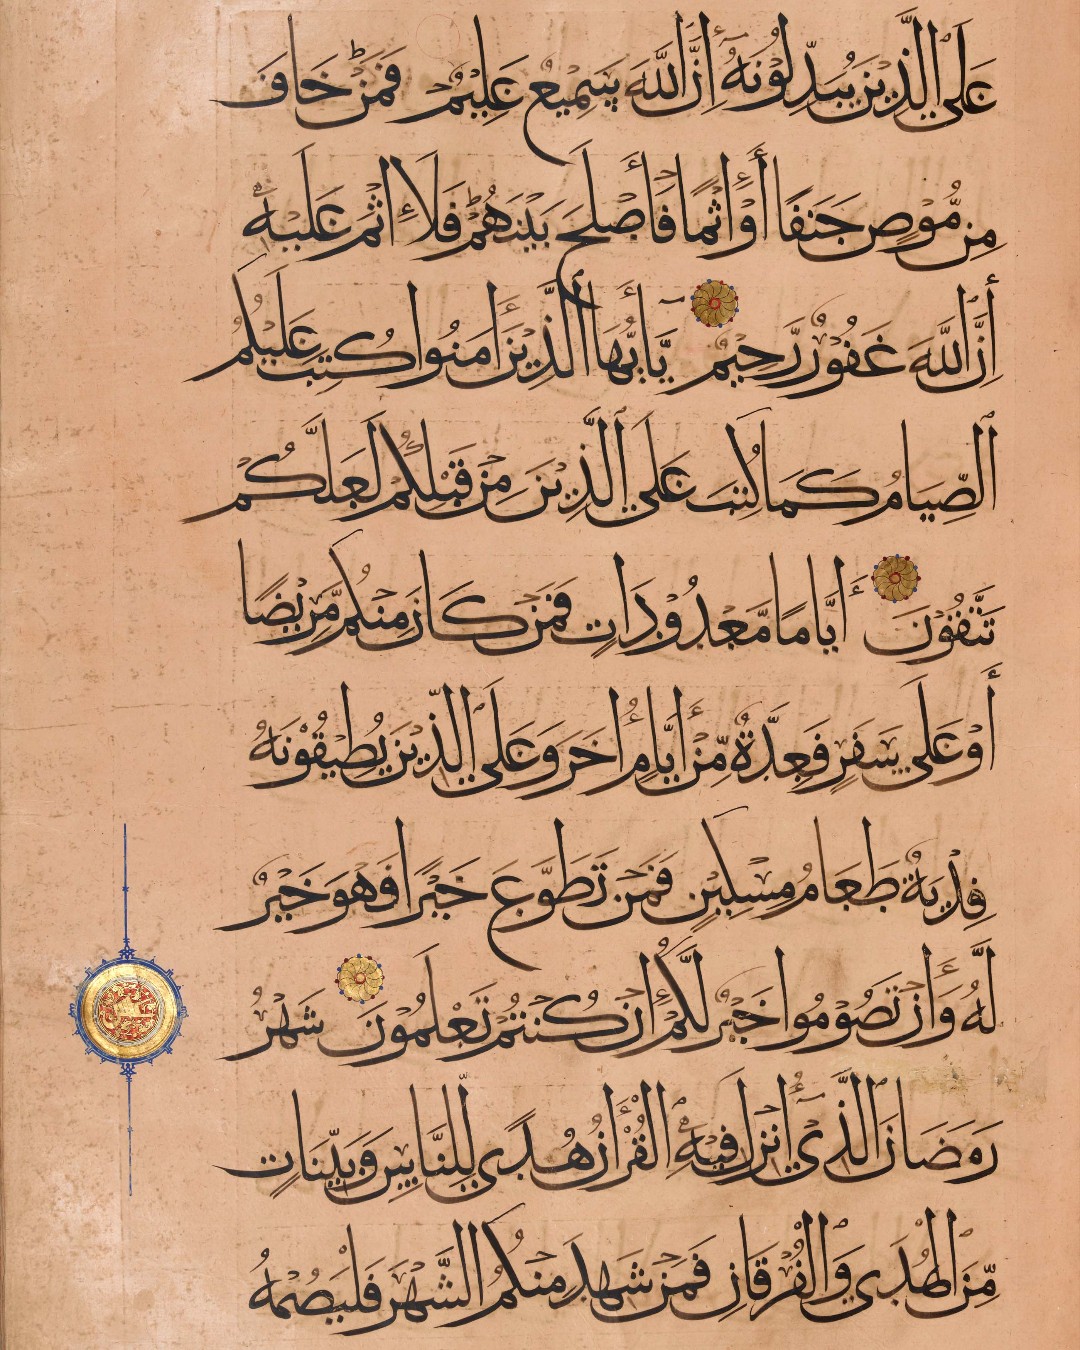 عَلَى ٱلَّذِينَ يُبَدِّلُونَهُ إِنَّ ٱللَّهَ سَمِيعٌ عَلِيمٌ فَمَنْ خَافَ
مِن مُّوصٍ جَنَفًا أَوْ إِثْمًا فَأَصْلَحَ بَيْنَهُمْ فَلَا إِثْمَ عَلَيْهِ
إِنَّ ٱللَّهَ غَفُورٌ رَّحِيمٌ يَا أَيُّهَا ٱلَّذِينَ آمَنُوا كُتِبَ عَلَيْكُمُ
ٱلصِّيَامُ كَمَا كُتِبَ عَلَى ٱلَّذِينَ مِن قَبْلِكُمْ لَعَلَّكُمْ
تَتَّقُونَ أَيَّامًا مَّعْدُودَاتٍ فَمَنْ كَانَ مِنْكُم مَّرِيضًا
أَوْ عَلَى سَفَرٍ فَعِدَّةٌ مِّنْ أَيَّامٍ أُخَرَ وَعَلَى ٱلَّذِينَ يُطِيقُونَهُ
فِدْيَةٌ طَعَامُ مِسْكِينٍ فَمَنْ تَطَوَّعَ خَيْرًا فَهُوَ خَيْرٌ
لَّهُ وَأَنْ تَصُومُوا خَيْرٌ لَّكُمْ إِنْ كُنْتُمْ تَعْلَمُونَ شَهْرُ
رَمَضَانَ ٱلَّذِي أُنْزِلَ فِيهِ ٱلْقُرْآنُ هُدًى لِّلنَّاسِ وَبَيِّنَاتٍ
مِّنَ ٱلْهُدَى وَٱلْفُرْقَانِ فَمَنْ شَهِدَ مِنْكُمُ ٱلشَّهْرَ فَلْيَصُمْهُ